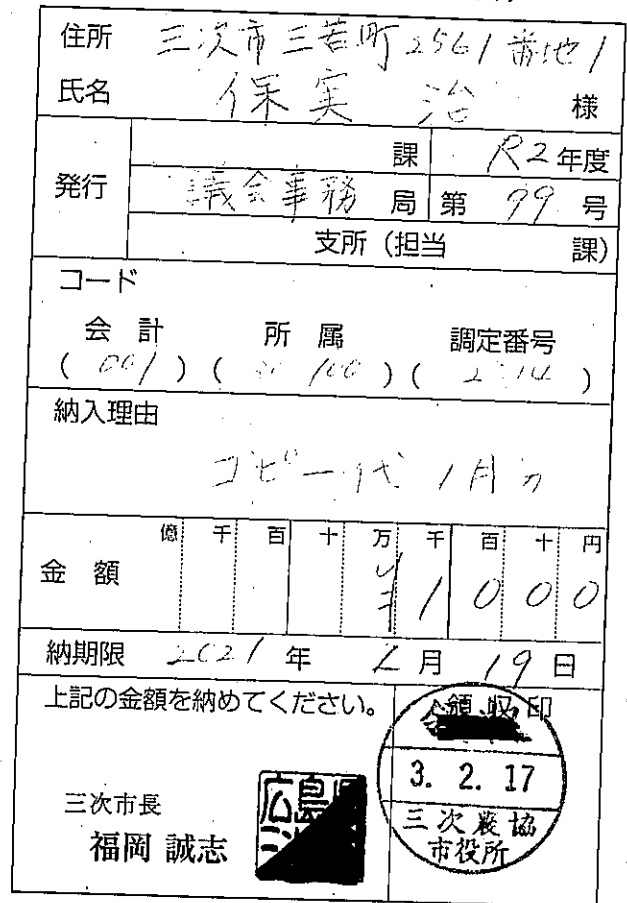 住所 三次市三若町2561番地1
氏名 保実 治 様
発行
課 R2年度
議会事務局 第 99 号
支所（担当 課）
コード
会計 所属 調定番号
(001) ( 100 ) ( )
納入理由
コピー代 1月分
億 千 百 十 万 千 百 十 円
金額 ¥1000
納期限 2021年 2月 19日
上記の金額を納めてください。
領収印
3. 2. 17
三次農協
市役所
三次市長
福岡 誠志